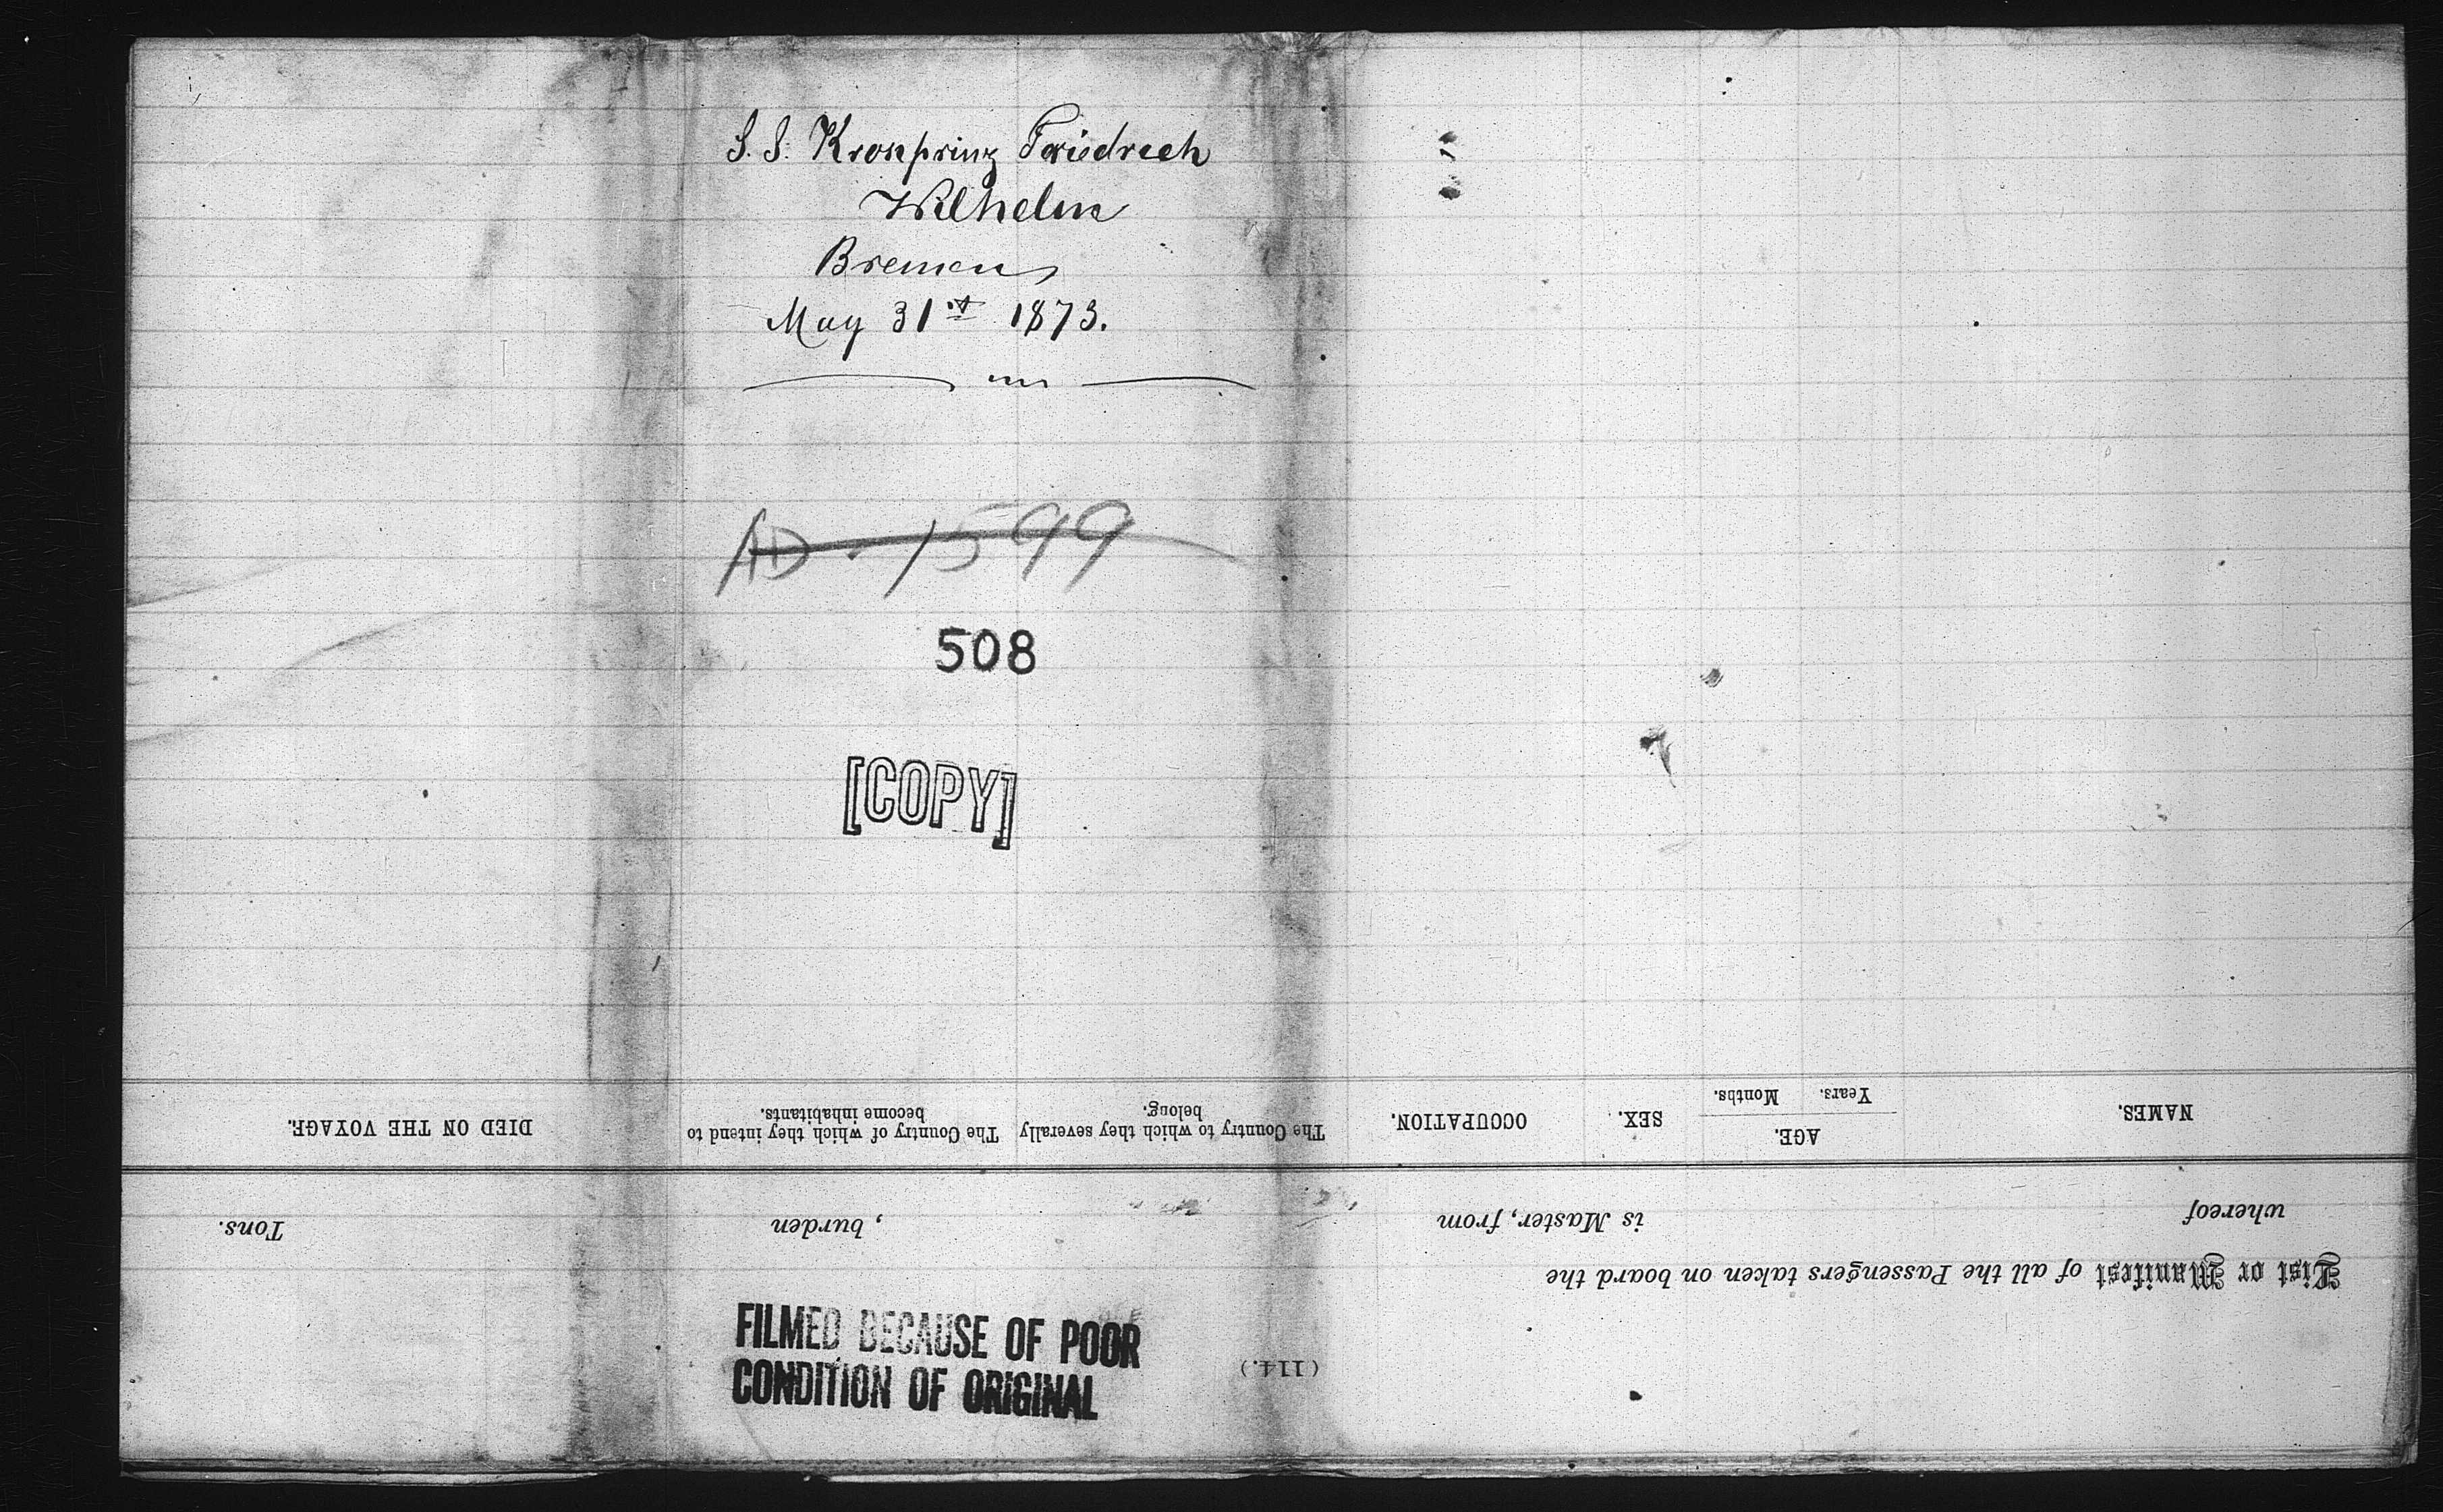 S. S. Kronprinz Friedrich
Wilhelm
Bremen
May 31st 1873.
AD - 1599
508
[COPY]
FILMED BECAUSE OF POOR
CONDITION OF ORIGINAL
(114.)
List or Manifest of all the Passengers taken on board the
whereof is Master, from , burden Tons.
NAMES.
AGE.
Years. Months.
SEX.
OCCUPATION.
The Country to which they severally
belong.
The Country of which they intend to
become inhabitants.
DIED ON THE VOYAGE.